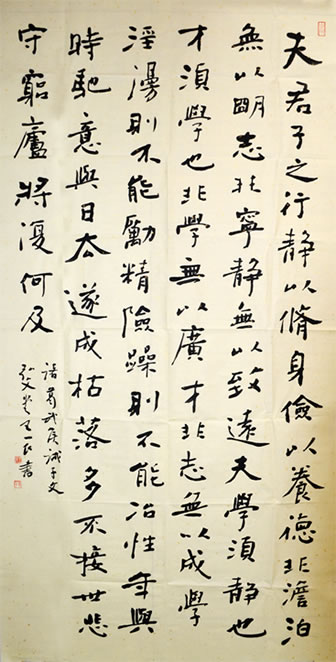 夫君子之行靜以脩身儉以養德非澹泊
無以明志非寧靜無以致遠夫學須靜也
才須學也非學無以廣才非志無以成學
淫漫則不能勵精險躁則不能冶性年與
時馳意與日去遂成枯落多不接世悲
守窮廬將復何及
諸葛武侯誡子文